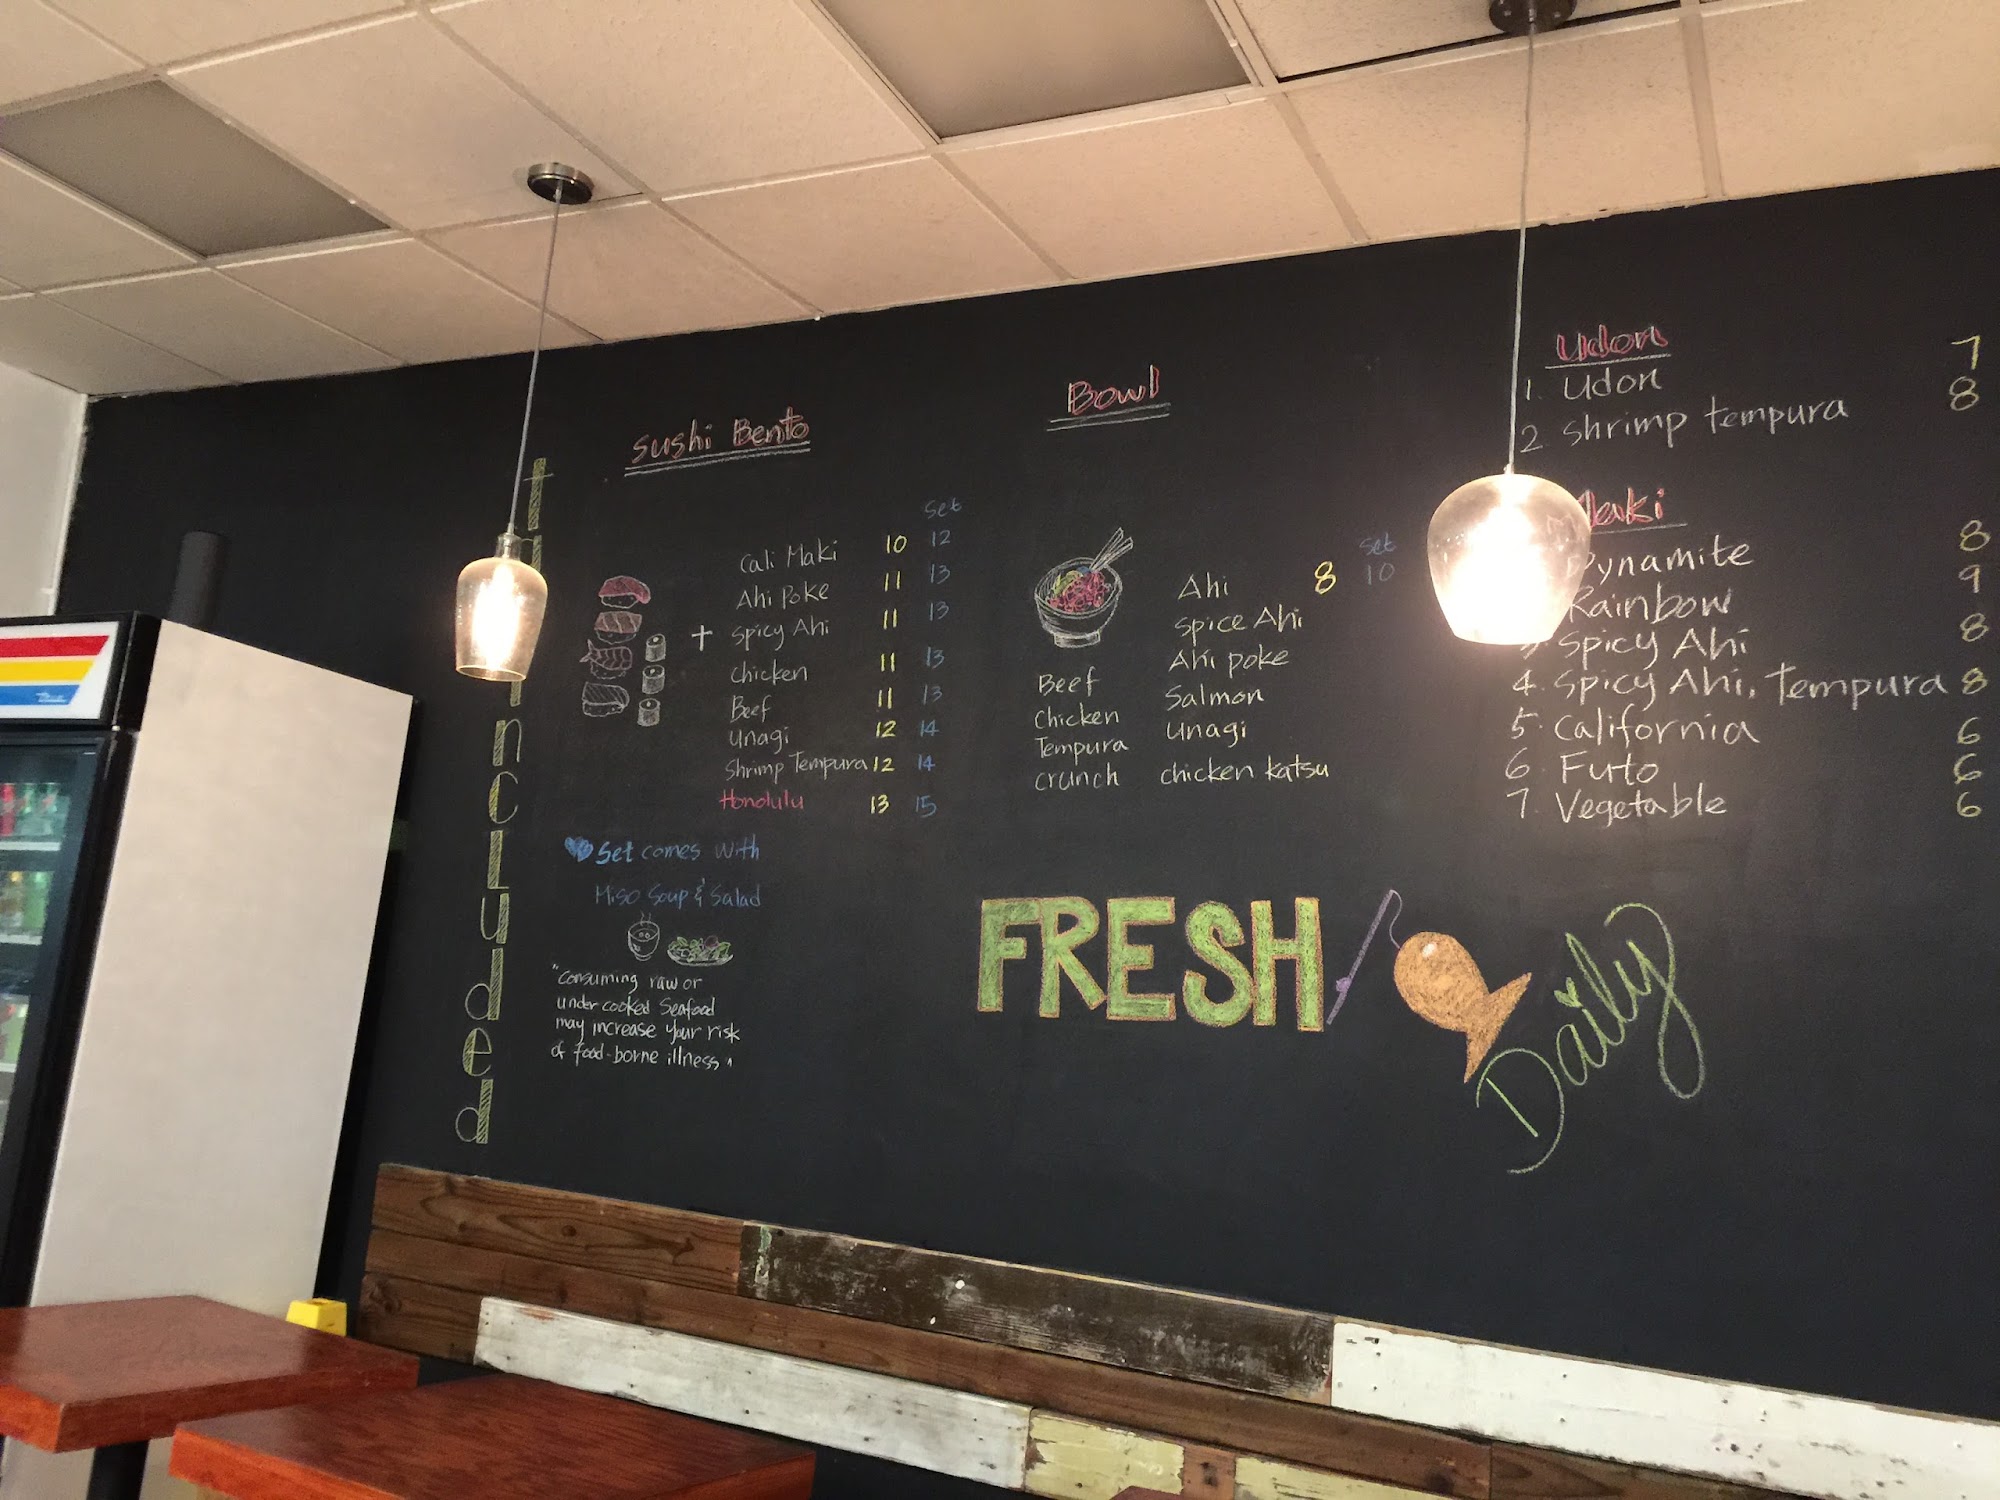 Sushi Bento
Set
Cali Maki 10 12
Ahi Poke 11 13
+ Spicy Ahi 11 13
Chicken 11 13
Beef 11 13
Unagi 12 14
Shrimp Tempura 12 14
Honolulu 13 15
Set comes with
Miso Soup & Salad
"Consuming raw or
under cooked Seafood
may increase your risk
of food-borne illness"
included
Bowl
Set
Ahi 8 10
Spice Ahi
Ahi poke
Salmon
Unagi
chicken katsu
Beef
Chicken
Tempura
crunch
Udon
1. Udon 7
2 Shrimp tempura 8
Maki
Dynamite 8
Rainbow 9
3. Spicy Ahi 8
4. Spicy Ahi, Tempura 8
5. California 6
6. Futo 6
7. Vegetable 6
FRESH
Daily